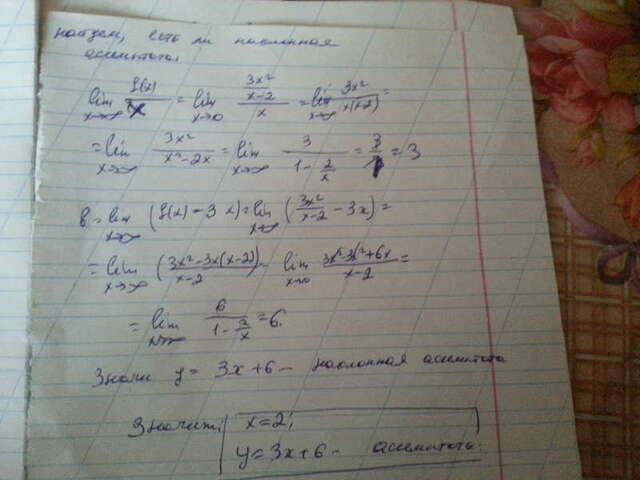 найдем, есть ли наклонная
асимптота:
lim x→∞ f(x)/x = lim x→∞ (3x²/(x-2))/x = lim x→∞ 3x²/(x(x-2)) =
= lim x→∞ 3x²/(x²-2x) = lim x→∞ 3/(1 - 2/x) = 3/1 = 3
b = lim x→∞ (f(x) - 3x) = lim x→∞ (3x²/(x-2) - 3x) =
= lim x→∞ (3x²-3x(x-2))/(x-2) = lim x→∞ (3x²-3x²+6x)/(x-2) =
= lim x→∞ 6/(1 - 2/x) = 6.
Значит y = 3x+6 - наклонная асимптота
Значит: x=2;
y=3x+6 - асимптоты.